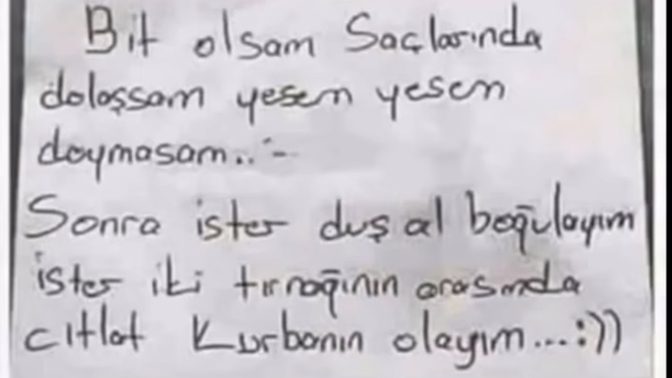 Bit olsam Saçlarında
dolaşsam yesem yesem
doymasam...
Sonra ister duş al boğulayım
ister iki tırnağının arasında
cıtlat Kurbanın olayım...:))